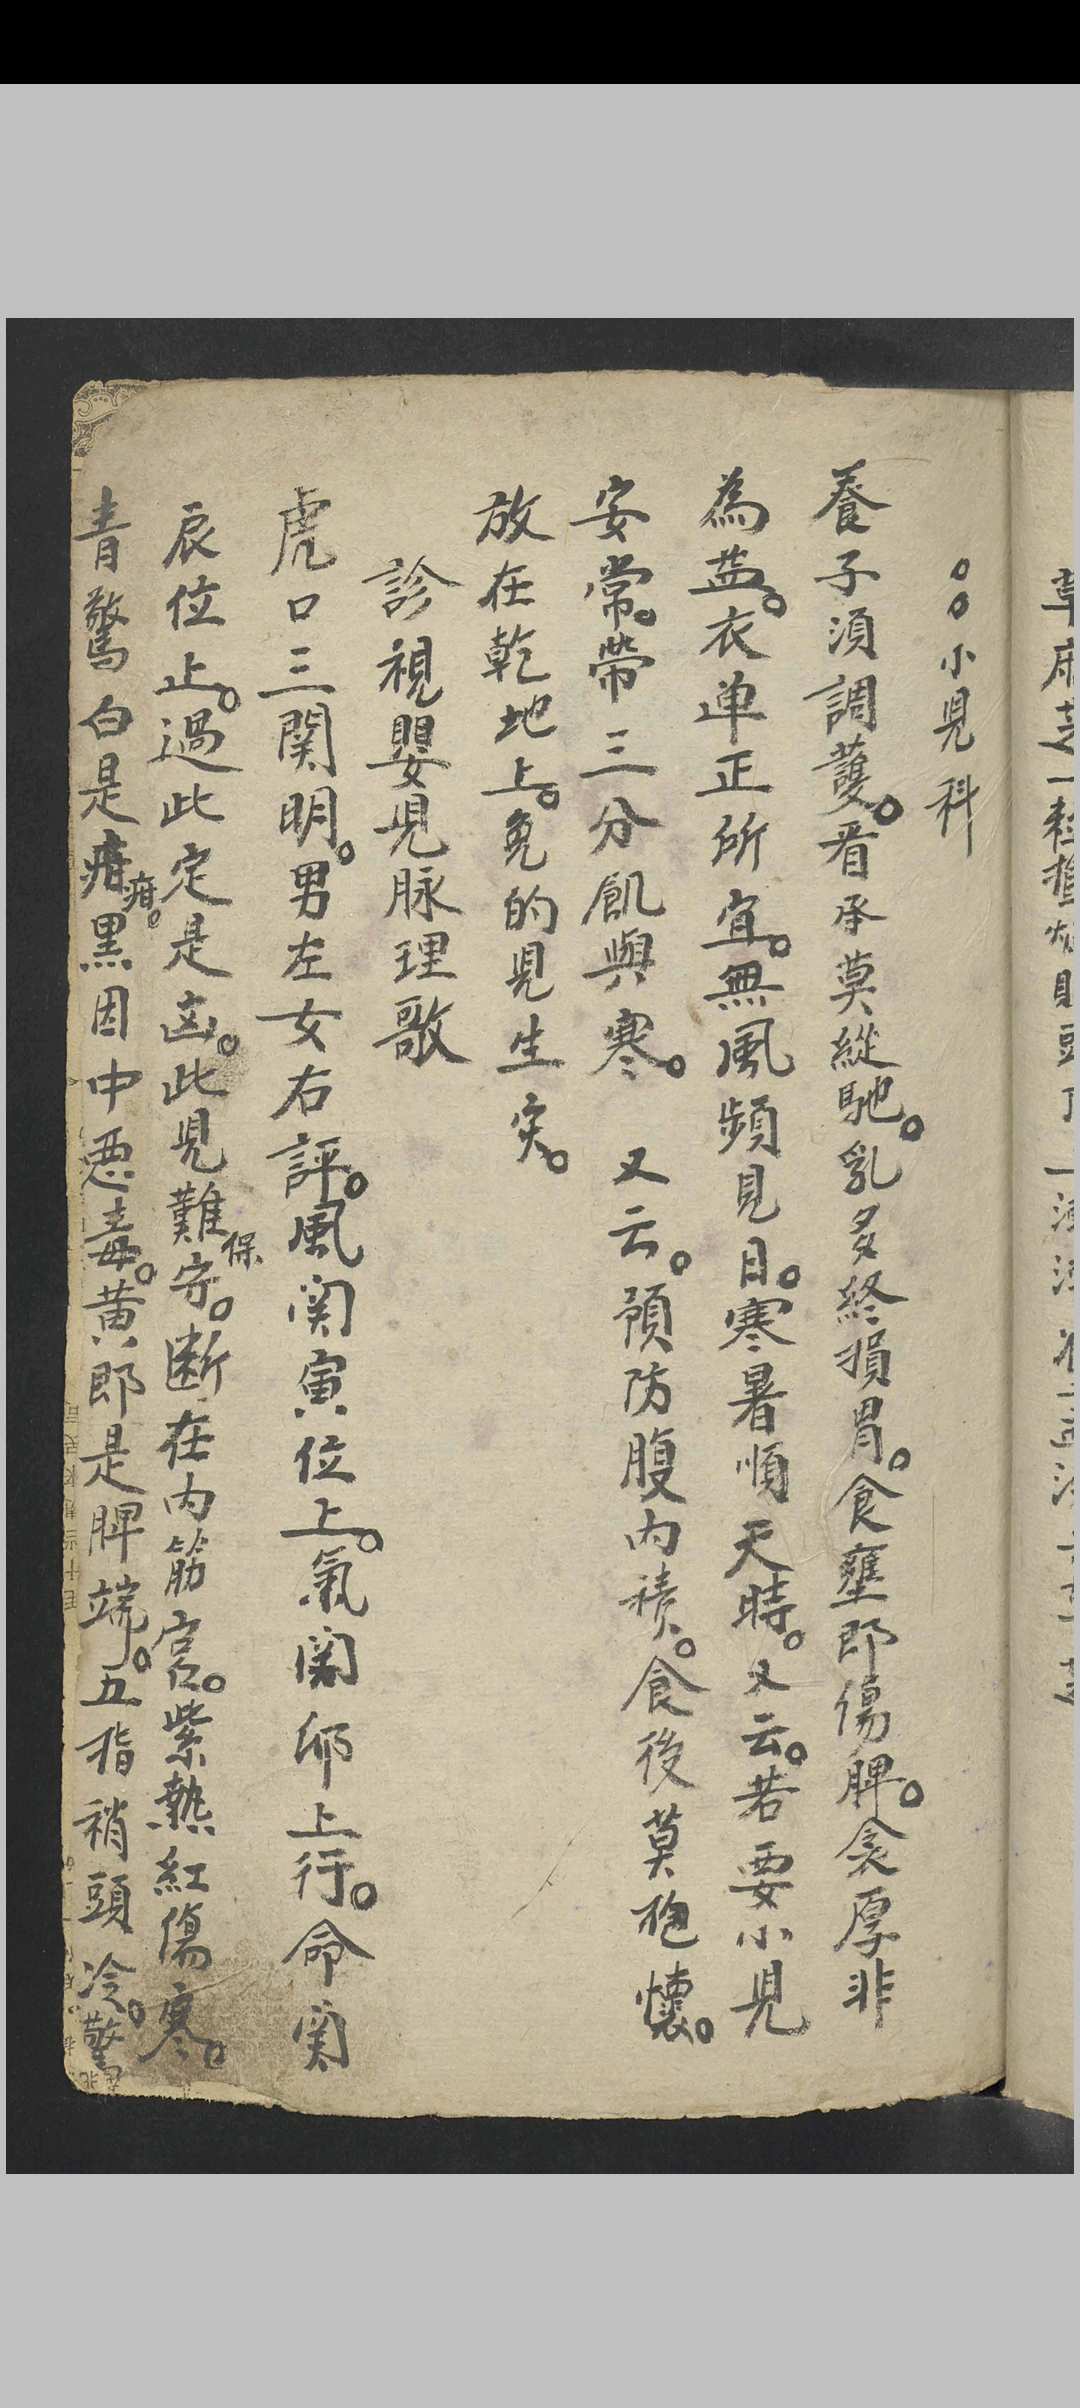 小兒科
養子須調護。看承莫縱馳。乳多終損胃。食壅即傷脾。衾厚非
為益。衣单正所宜。無風頻見日。寒暑順天時。又云。若要小兒
安常。帶三分飢與寒。又云。預防腹内積。食後莫抱懷。
放在乾地上。免的兒生灾。
診視嬰兒脉理歌
虎口三関明。男左女右評。風関寅位上。氣関卯上行。命関
辰位止。過此定是凶。此兒難守。保断在内筋宫。紫熱紅傷寒。
青驚白是疳疳。黑因中悪毒。黄即是脾端。五指梢頭冷。驚